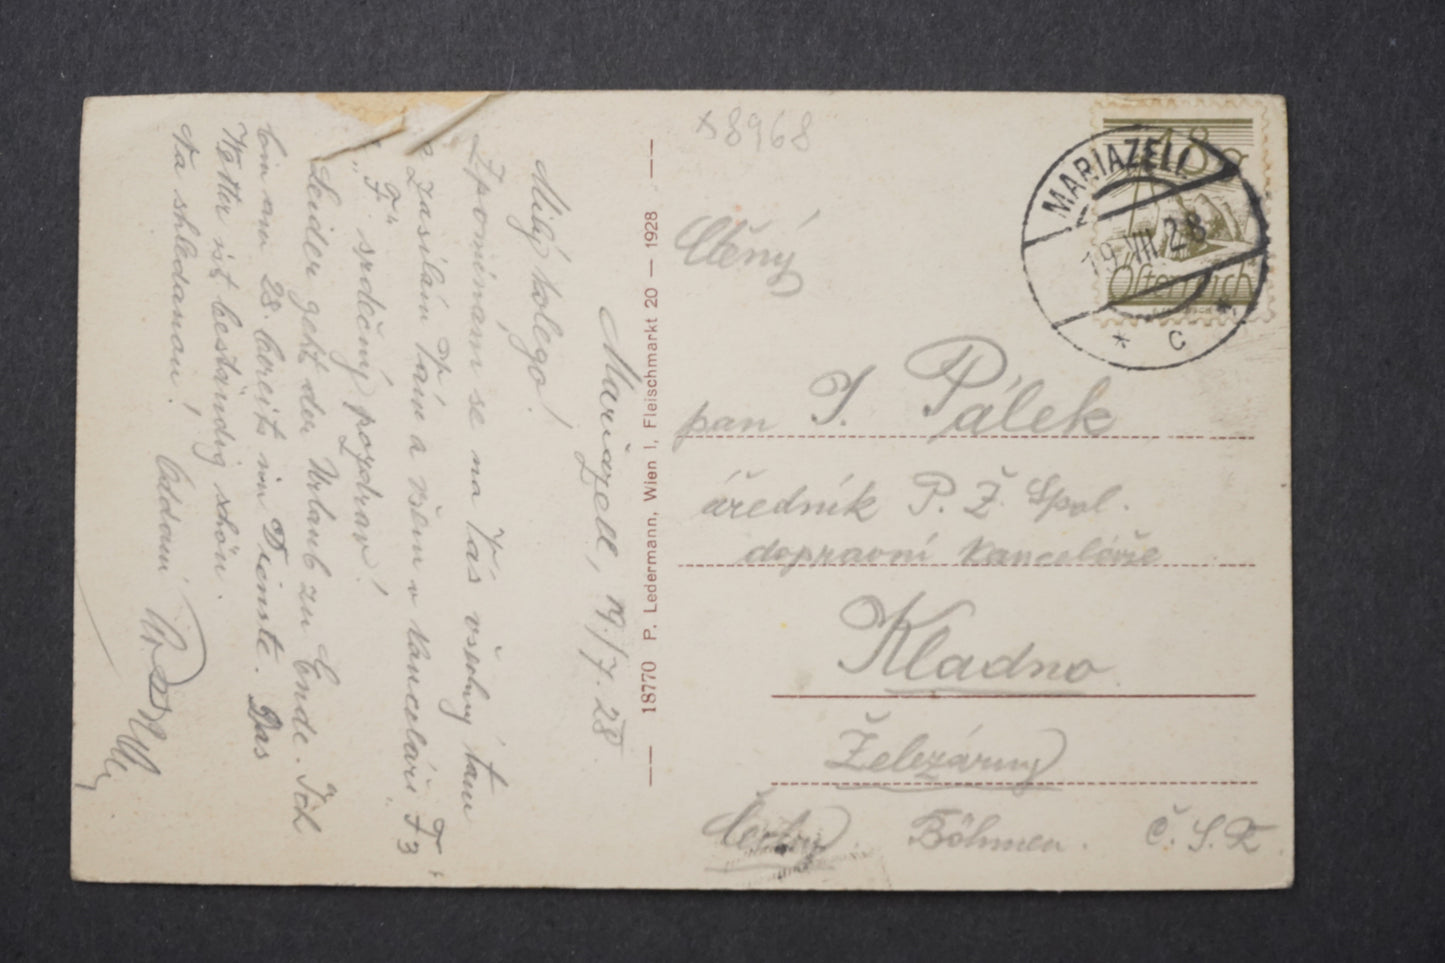 Mariazell, 19./7. 28
Milý kolego!
Zpomínám se na Vás všechny tam
a zasílám Vám a všem v kanceláři F3
„F“ srdečný pozdrav!
Leider geht der Urlaub zu Ende. Ich
bin am 28 bereits im Dienste. Das
Wetter ist beständig schön.
Na shledanou! Oddaný
18770 P. Ledermann, Wien I, Fleischmarkt 20 — 1928
x8968
MARIAZELL
19.VII.28
* C *
18g
Österreich
Ctěný
pan J. Pálek
úředník P. Ž. Spol.
dopravní kanceláře
Kladno
Železárny
Čechy Böhmen. Č. S. R.